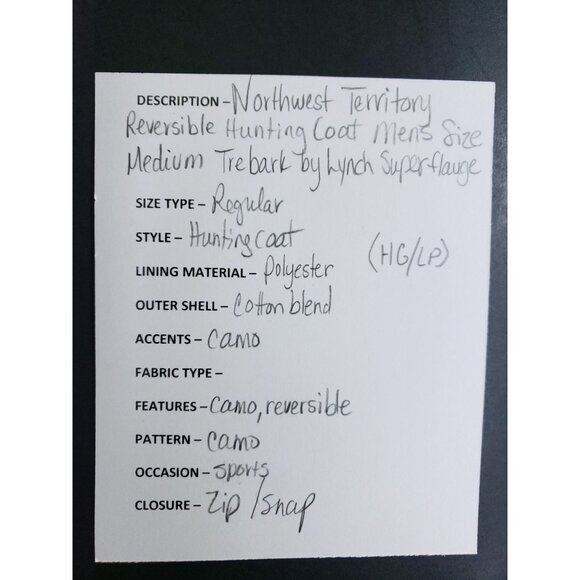 DESCRIPTION – Northwest Territory
Reversible Hunting Coat Mens Size
Medium Trebark by Lynch Superflauge
SIZE TYPE – Regular
STYLE – Hunting coat
(HG/LP)
LINING MATERIAL – Polyester
OUTER SHELL – Cotton blend
ACCENTS – Camo
FABRIC TYPE –
FEATURES – Camo, reversible
PATTERN – Camo
OCCASION – Sports
CLOSURE – Zip / Snap